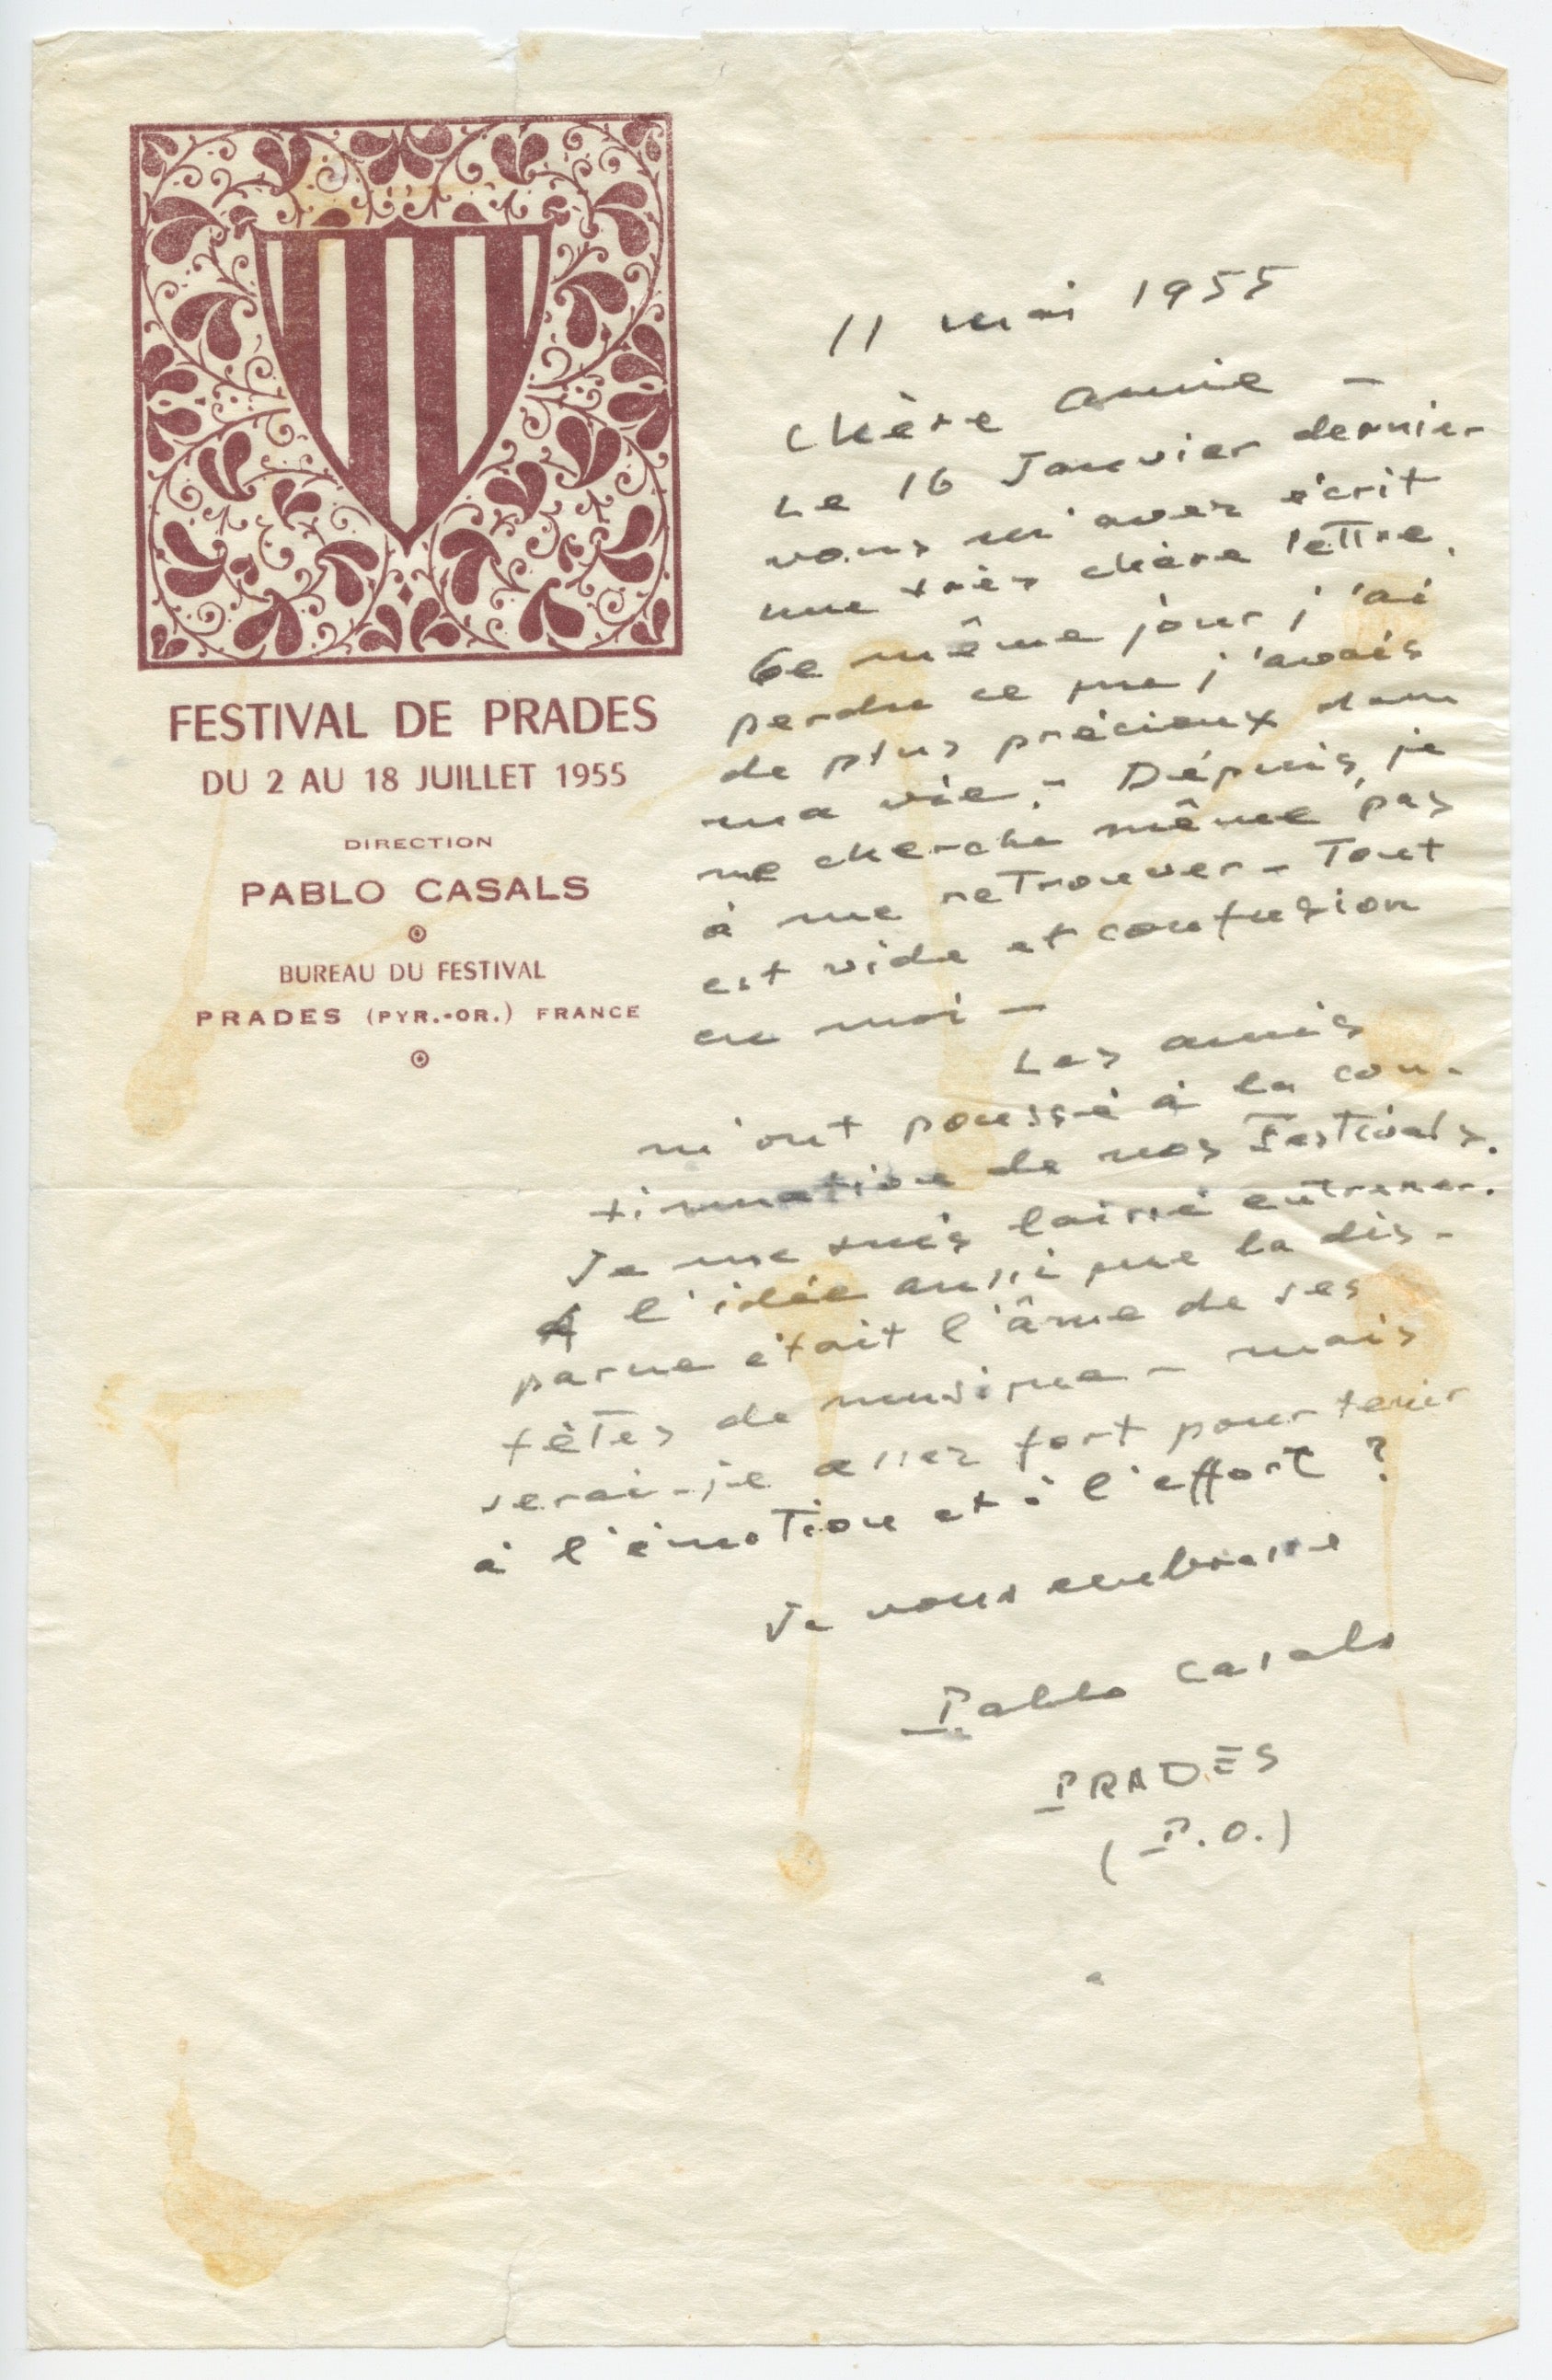 FESTIVAL DE PRADES
DU 2 AU 18 JUILLET 1955
DIRECTION
PABLO CASALS
BUREAU DU FESTIVAL
PRADES (PYR.-OR.) FRANCE
11 mai 1955
Chère amie –
Le 16 Janvier dernier
vous m'avez écrit
une très chère lettre.
Ce même jour j'ai
perdu ce que j'avais
de plus précieux dans
ma vie. – Dépuis, je
ne cherche même pas
à me retrouver – Tout
est vide et confusion
en moi –
Les amis
m'ont poussé à la con-
tinuation de nos Festivals.
Je me suis laissé entrener.
A l'idée aussi que la dis-
parue était l'âme de ses
fêtes de musique – mais
serai-je assez fort pour tenir
à l'émotion et à l'effort ?
Je vous embrasse
Pablo Casals
PRADES
(P.O.)